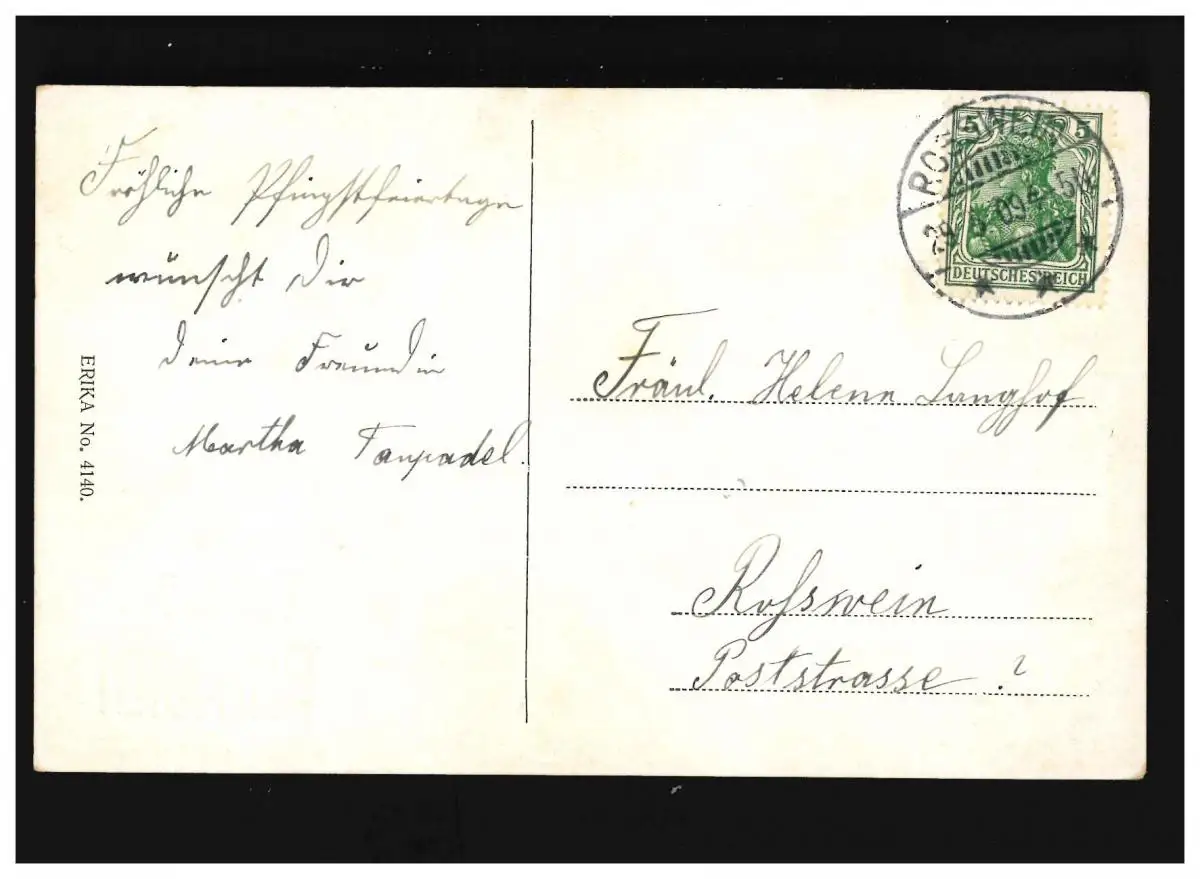 Fröhliche Pfingstfeiertage
wünscht Dir
deine Freundin
Martha Tanpadel.
ERIKA No. 4140.
5 5
DEUTSCHES REICH
ROSSWEIN
29.5.09.4-5N.
Fräul. Helene Langhof
Rosswein
Poststrasse ?